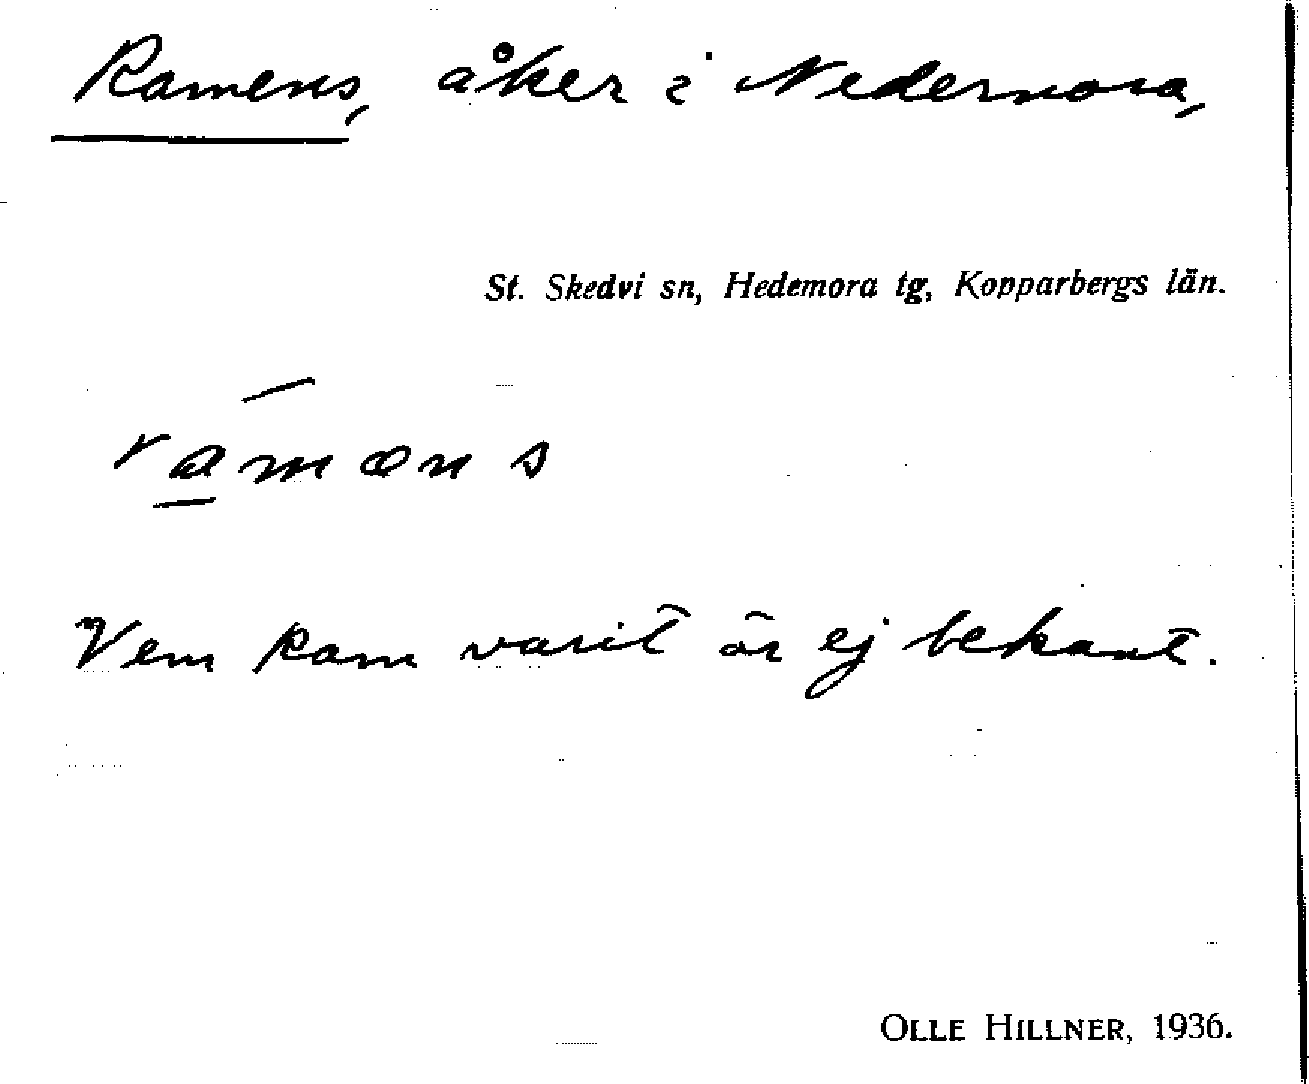 Ramens, åker i Nedernora,
St. Skedvi sn, Hedemora tg, Kopparbergs län.
raməns
Vem Ram varit är ej bekant.
OLLE HILLNER, 1936.